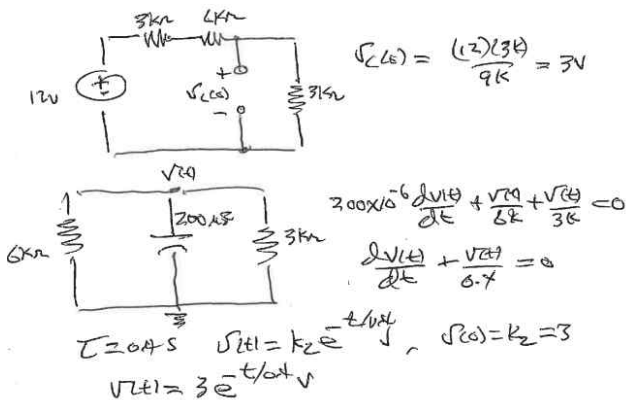 3kΩ
12V
+
Vc(0)
-
3kΩ
Vc(0) = (12)(3k) / 9k = 3V
V(t)
6kΩ
200μF
3kΩ
200x10^-6 dV(t)/dt + V(t)/6k + V(t)/3k = 0
dV(t)/dt + V(t)/0.4 = 0
τ = 0.4 s V(t) = k2 e^-t/0.4, V(0) = k2 = 3
V(t) = 3 e^-t/0.4 V